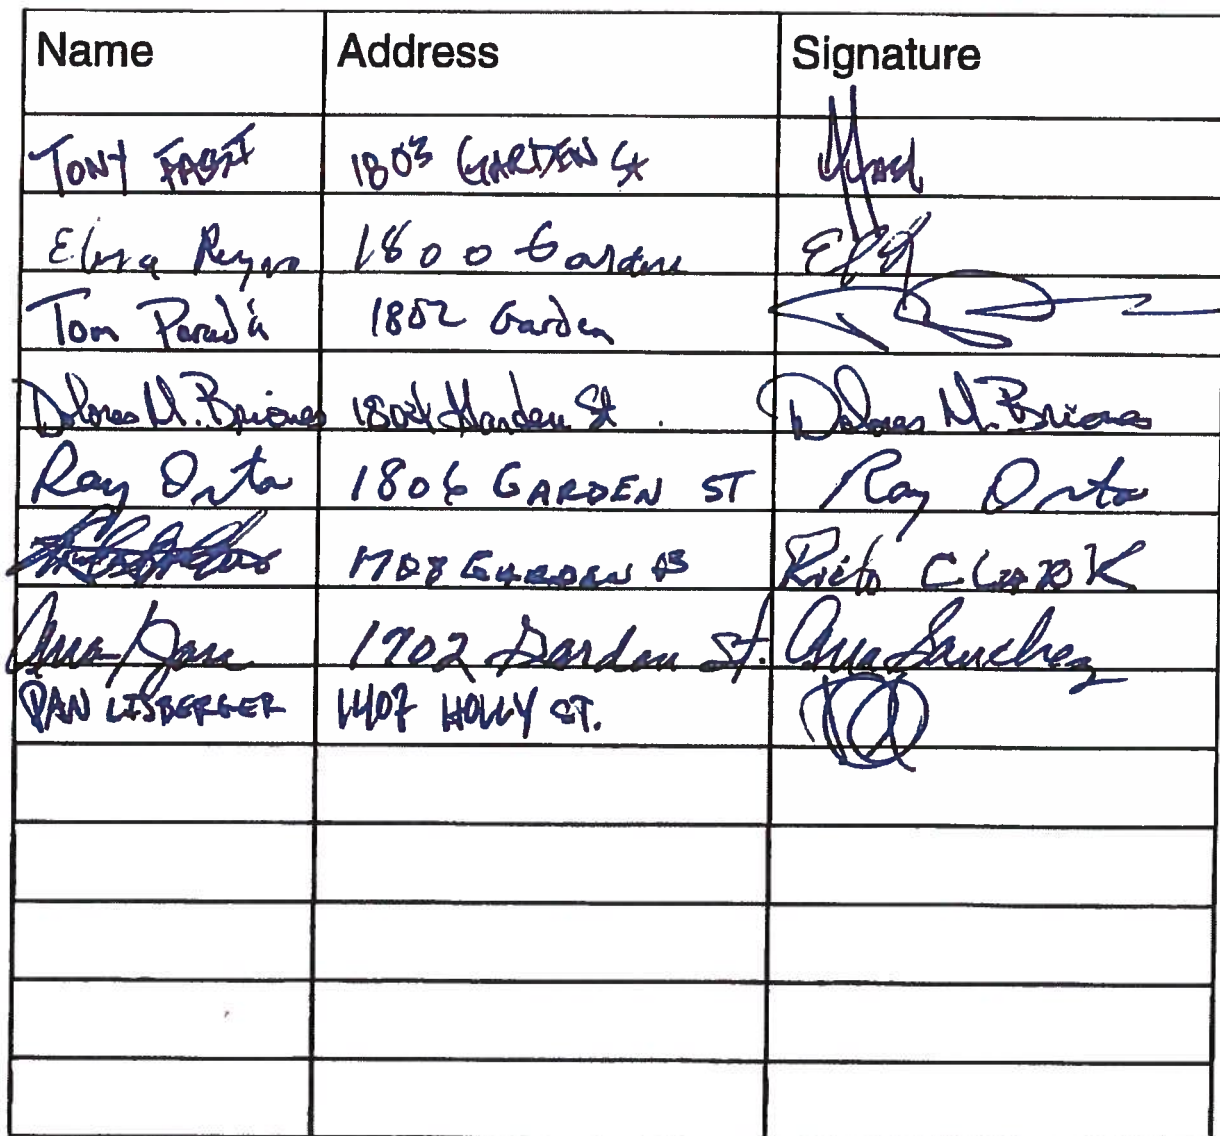 Name Address Signature
TONY 1803 GARDEN St
1800 Garden
Tom Parada 1802 Garden
Dolores M. Briones 1804 Garden St. Dolores M. Briones
Ray Orta 1806 GARDEN ST Ray Orta
1708 GARDEN CLARK
Ana 1702 Garden St. Ana Sanchez
DAN LISBERGER 1407 HOLLY ST.